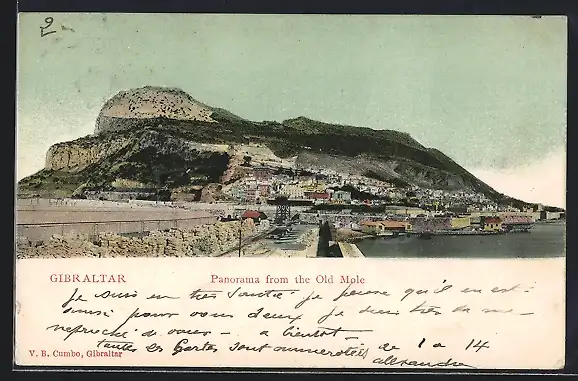 9
GIBRALTAR Panorama from the Old Mole
Je suis en très Santé je pense qu'il en est
ainsi pour vous deux je suis très
reproché de vous - a bientot -
toutes les Cartes sont numerotés de 1 a 14
alexandra
V. B. Cumbo, Gibraltar